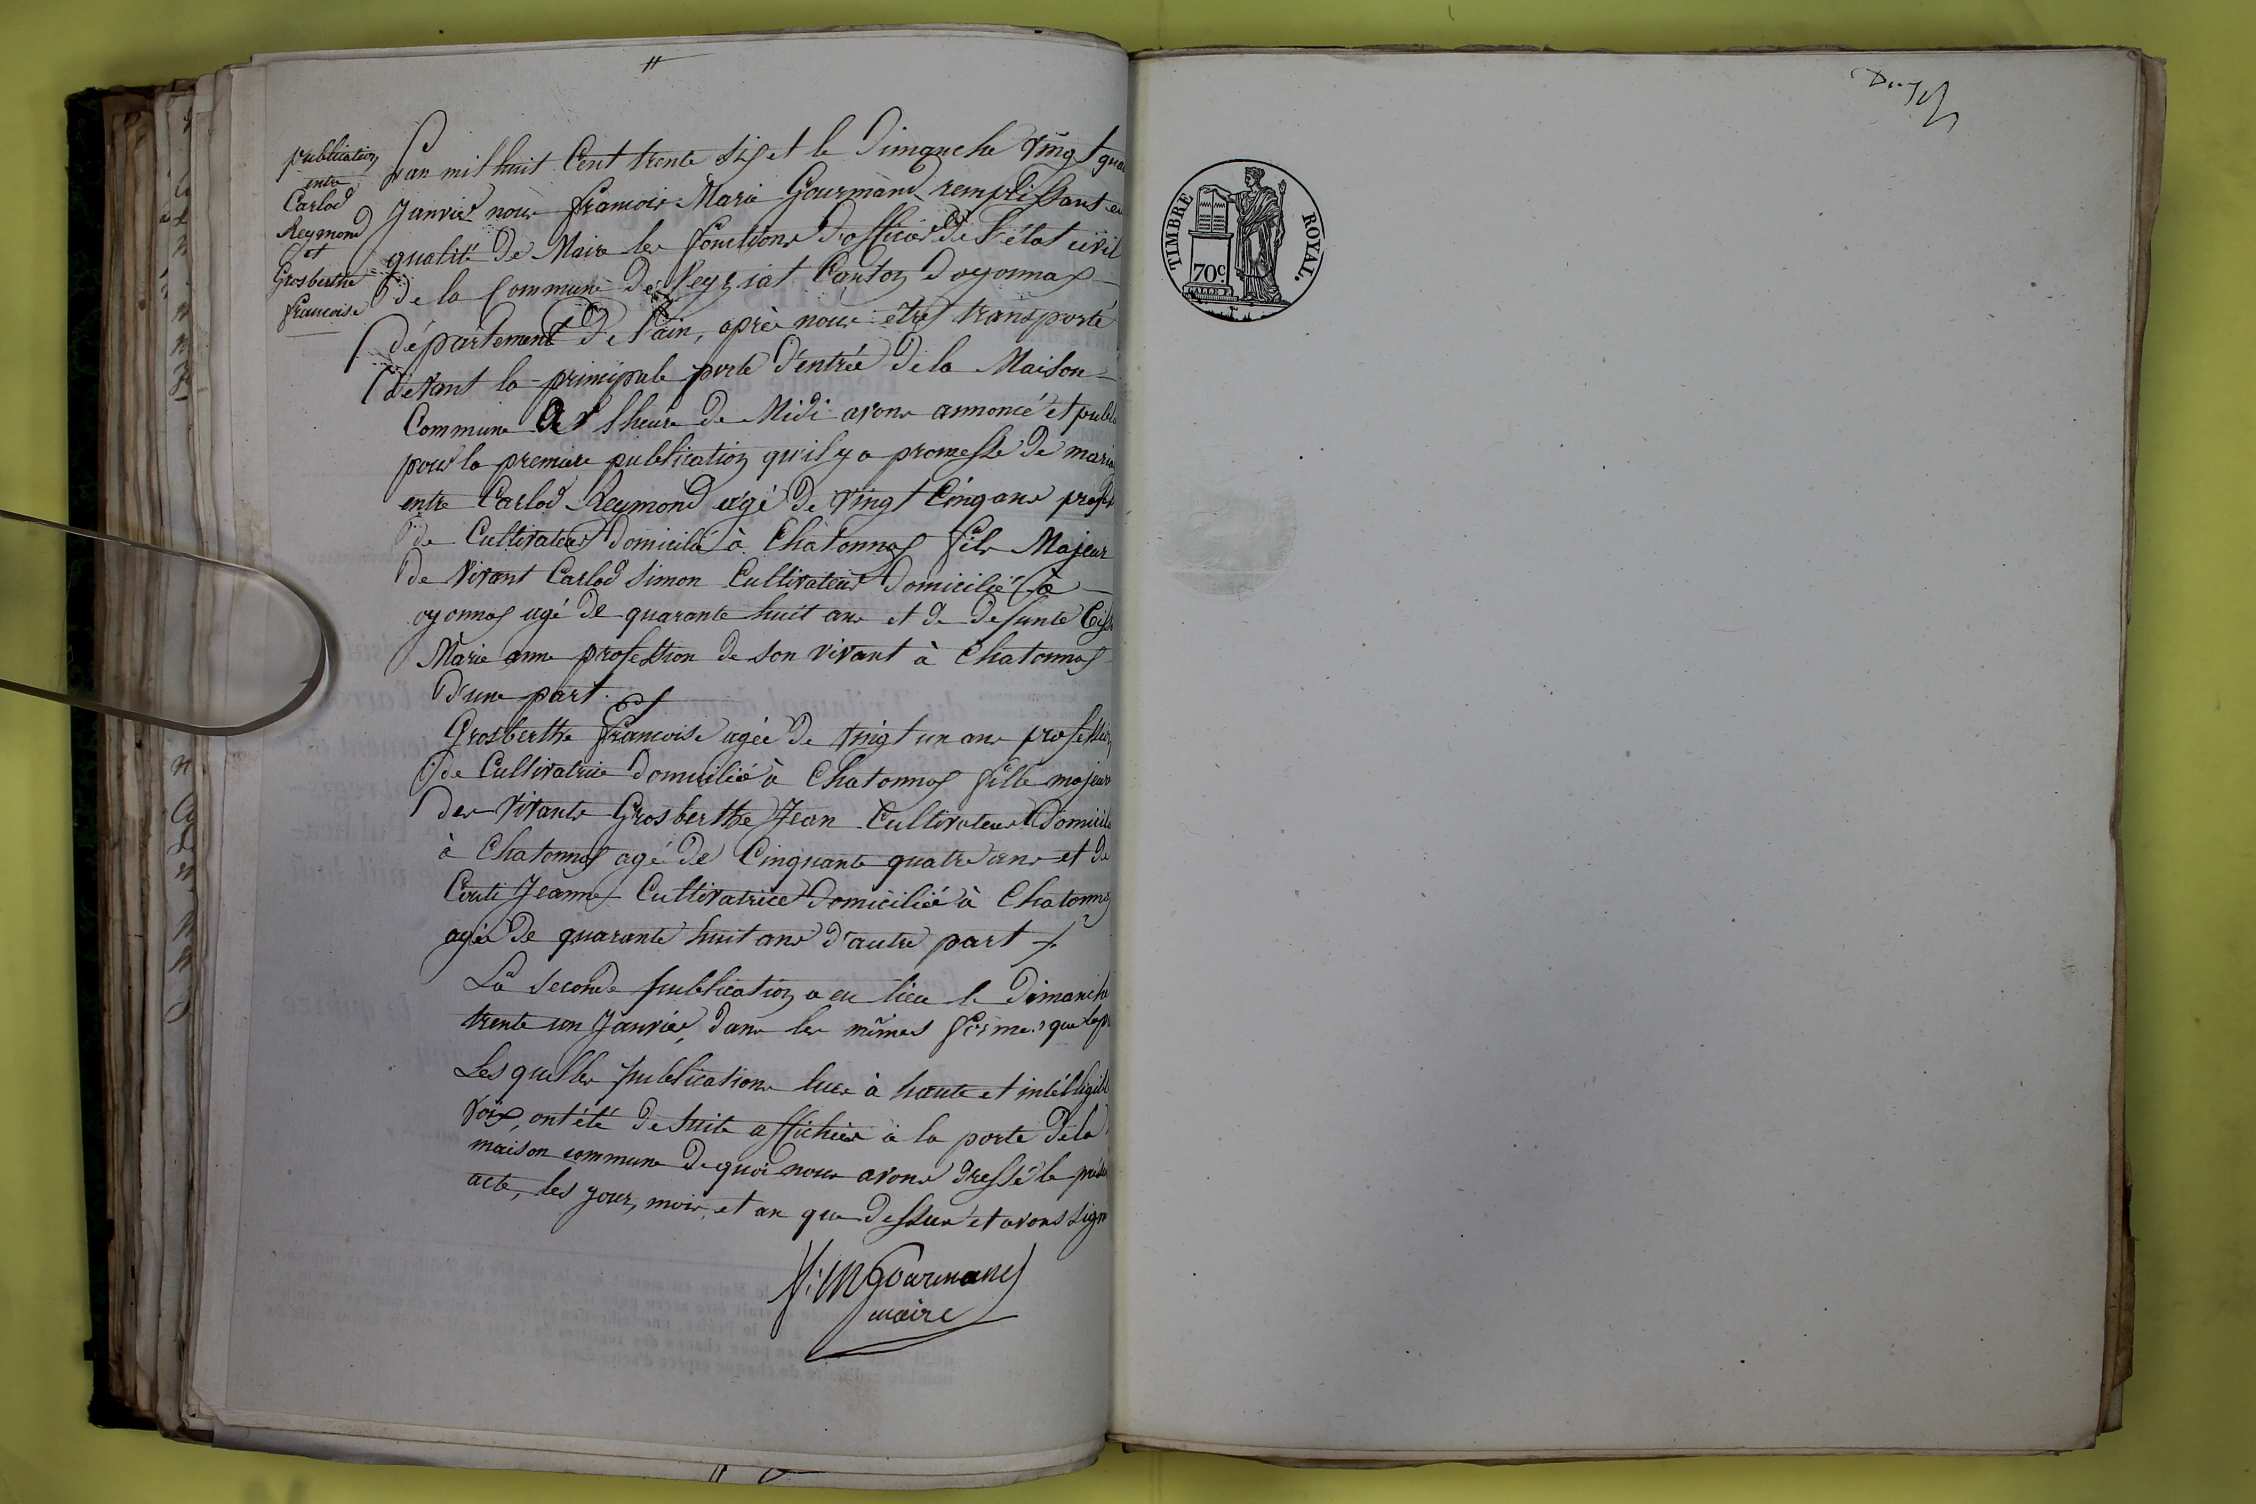 publication
entre
Carlod
Reymond
et
Grosberthe
francoise
L'an mil huit Cent trente six et le Dimanche vingt quat
Janvier nous francois Marie Gourmand remplissant en
qualité de Maire les fonctions d'officier de l'état civil
de la Commune de Veyziat Canton d'oyonnax
département de l'ain, après nous être transporté
devant la principale porte d'entrée de la Maison
Commune à l'heure de Midi avons annoncé et publié
pour la premiere publication qu'il y a promesse de maria
entre Carlod Reymond agé de vingt Cinq ans profess
de Cultivateur domicilié à Chatonnax fils Majeur
de vivant Carlod Simon Cultivateur domicilié à
oyonnax agé de quarante huit ans et de defunte
Marie anne profession de son vivant à Chatonnax
d'une part.
Et
Grosberthe francoise agée de vingt un ans profession
de Cultivatrice domiciliée à Chatonnax fille majeure
des vivants Grosberthe Jean Cultivateur domicilié
à Chatonnax agé de Cinquante quatre ans et de
Jeanne Cultivatrice domiciliée à Chatonnax
agée de quarante huit ans d'autre part
La seconde publication a eu lieu le Dimanche
trente un Janvier, dans les mêmes formes que la p
Les quelles publications lues à haute et intélligible
voix, ont été de suite affichées à la porte de la
maison commune de quoi nous avons dressé le présen
acte, les jour, mois et an que dessus et avons signé
f: M Gourmand
maire
TIMBRE ROYAL.
70c